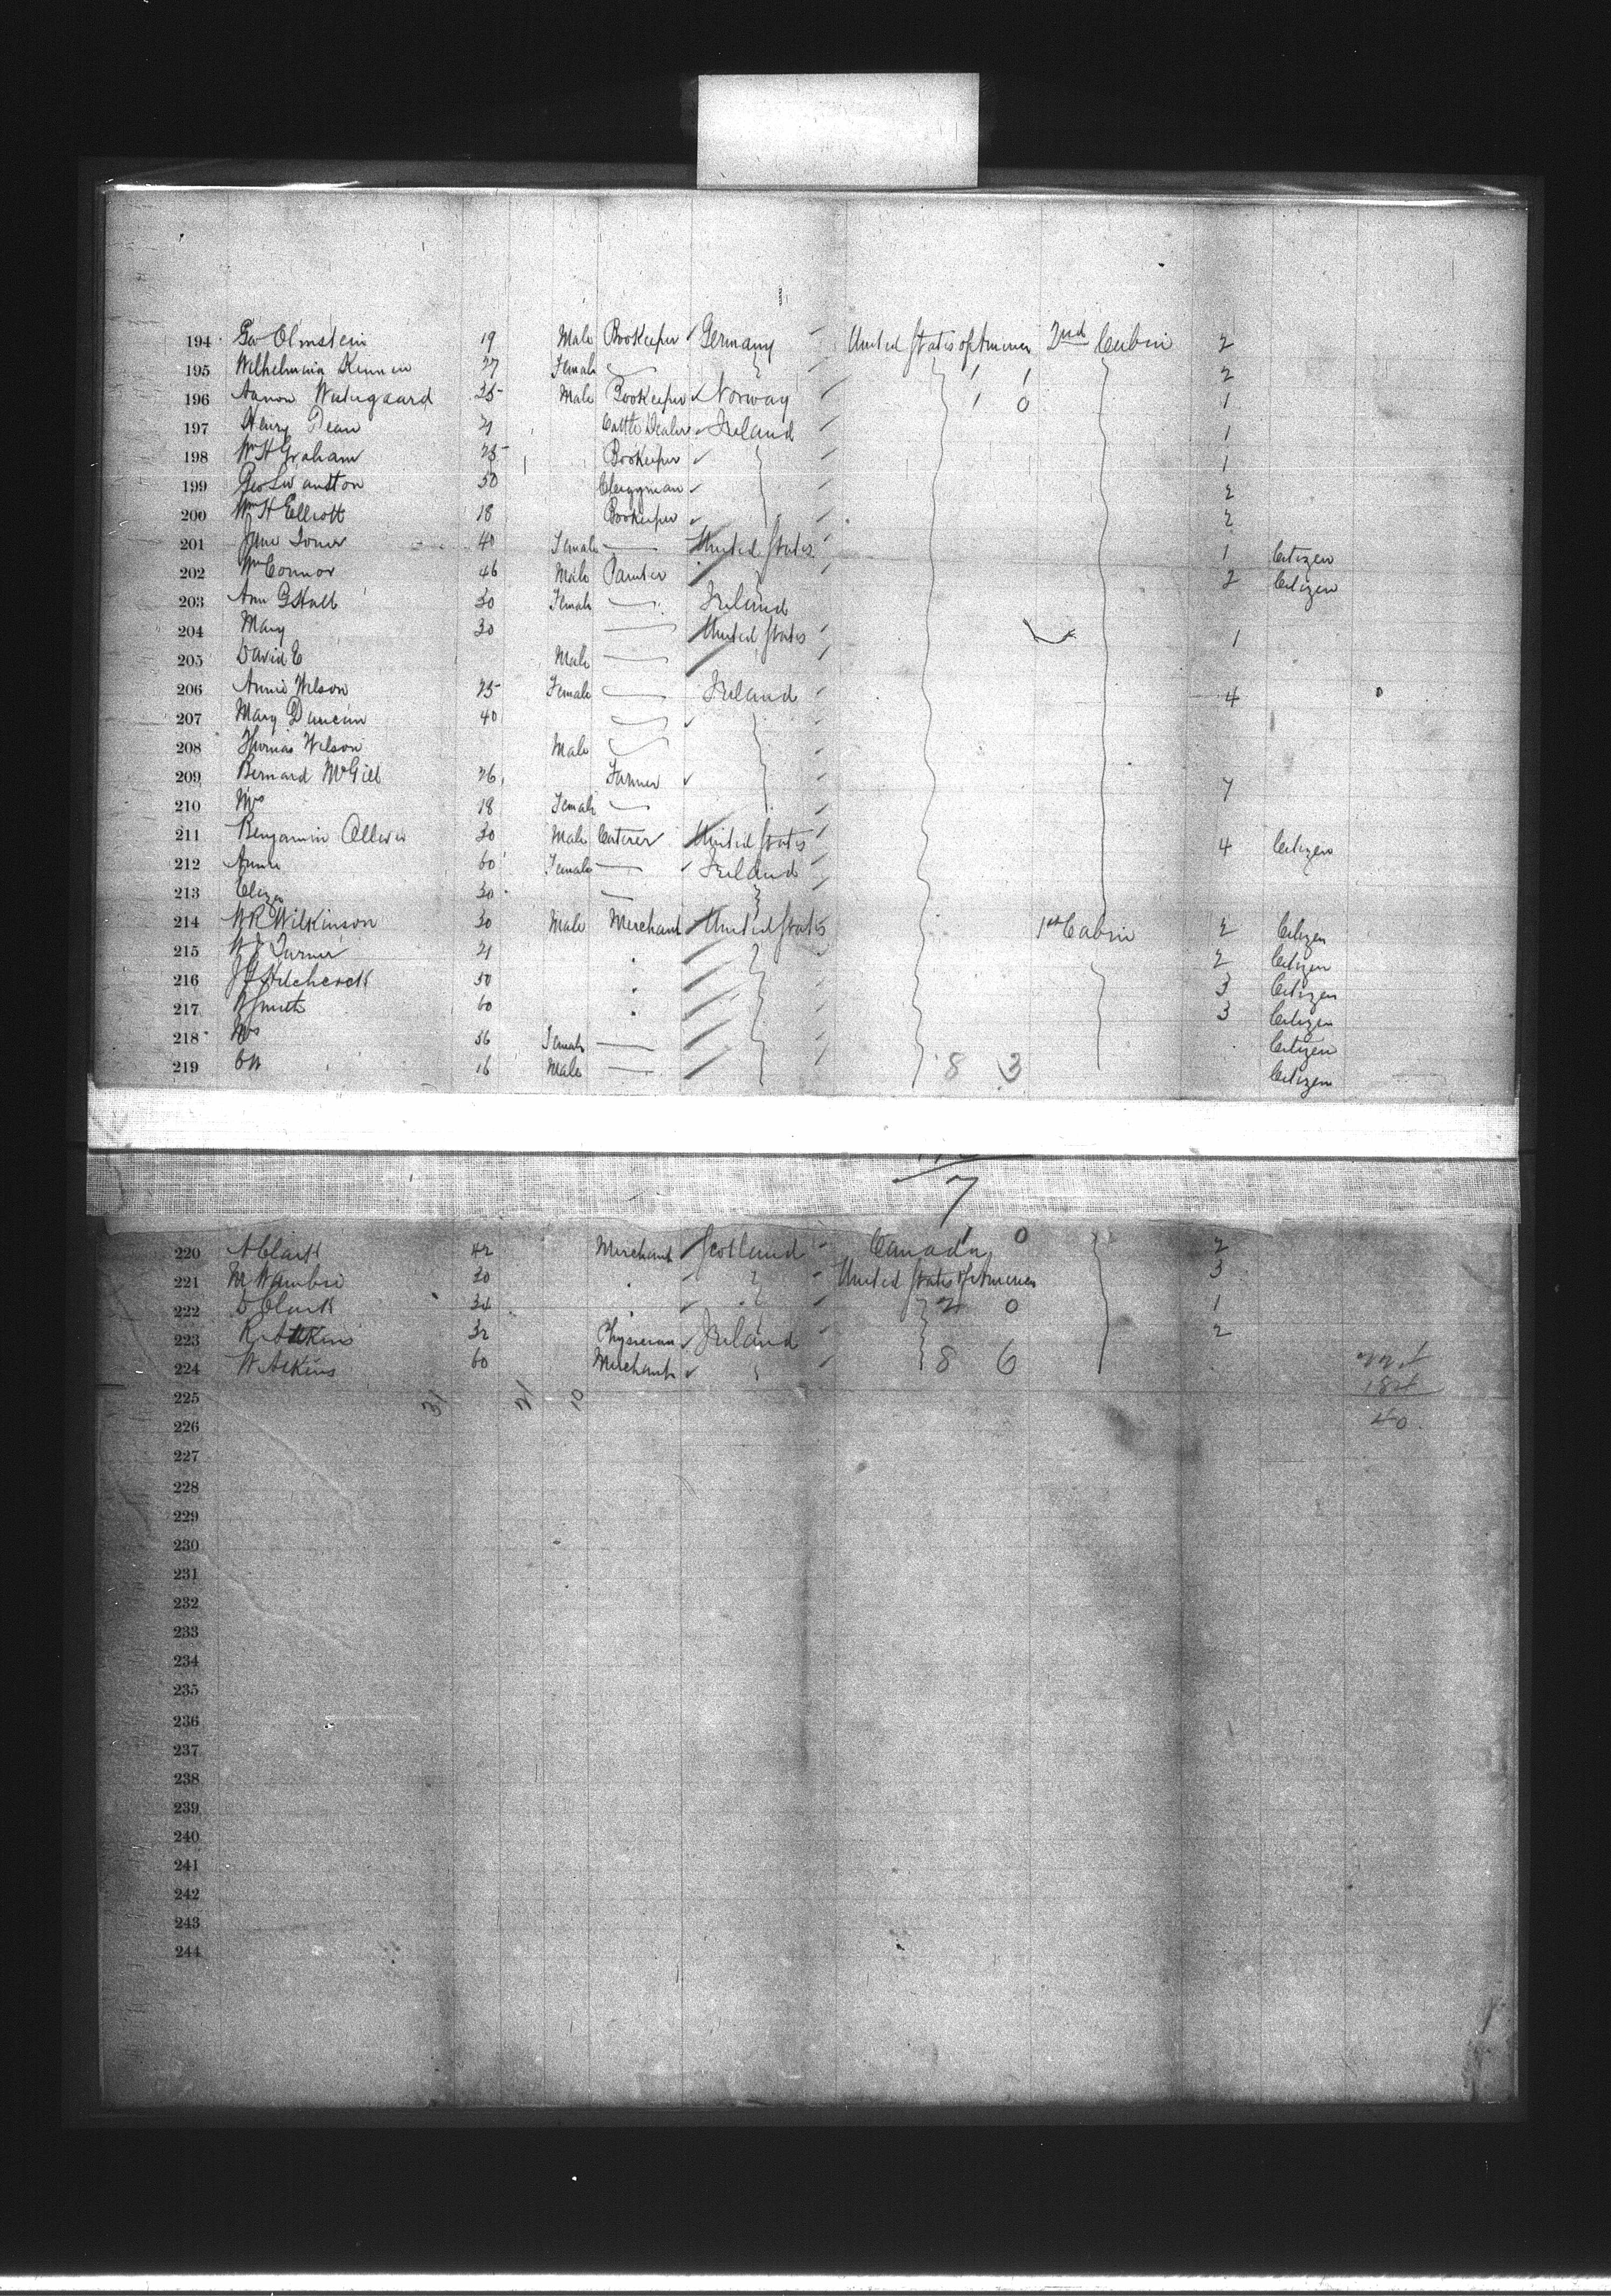 194 Geo Olmstein 19 Male Bookeeper Germany United States of America 2nd Cabin 2
195 Wilhelmina 27 Female 1 1 2
196 Aanon 25 Male Bookeeper Norway 1 0 1
197 Henry Dean 21 Cattle Dealer Ireland 1
198 Wm H Graham 25 Bookeeper 1
199 Geo Swanston 50 Clergyman 2
200 Wm H Elliott 18 Bookeeper 2
201 Jane 40 Female United States 1 Citizen
202 Wm Connor 46 Male Painter 2 Citizen
203 Ann G Hall 30 Female Ireland
204 Mary 30 United States 1
205 David E Male
206 Annie Wilson 25 Female Ireland 4
207 Mary Duncan 40
208 Thomas Wilson Male
209 Bernard McGill 26 Farmer 7
210 Mrs 18 Female
211 Benjamin 30 Male Caterer United States 4 Citizen
212 Annie 60 Female Ireland
213 Eliza 30
214 W R Wilkinson 30 Male Merchant United States 1st Cabin 2 Citizen
215 Turner 21 2 Citizen
216 Hitchcock 50 3 Citizen
217 Smith 60 3 Citizen
218 Mrs 56 Female Citizen
219 16 Male 8 3 Citizen
7
220 A Clark 42 Merchant Scotland Canada 1 0 2
221 30 United States of America 3
222 D Clark 34 2 0 1
223 R Atkins 32 Physician Ireland 2
224 W Atkins 60 Merchant 8 6
225 31 21 10 184
226 40
227
228
229
230
231
232
233
234
235
236
237
238
239
240
241
242
243
244